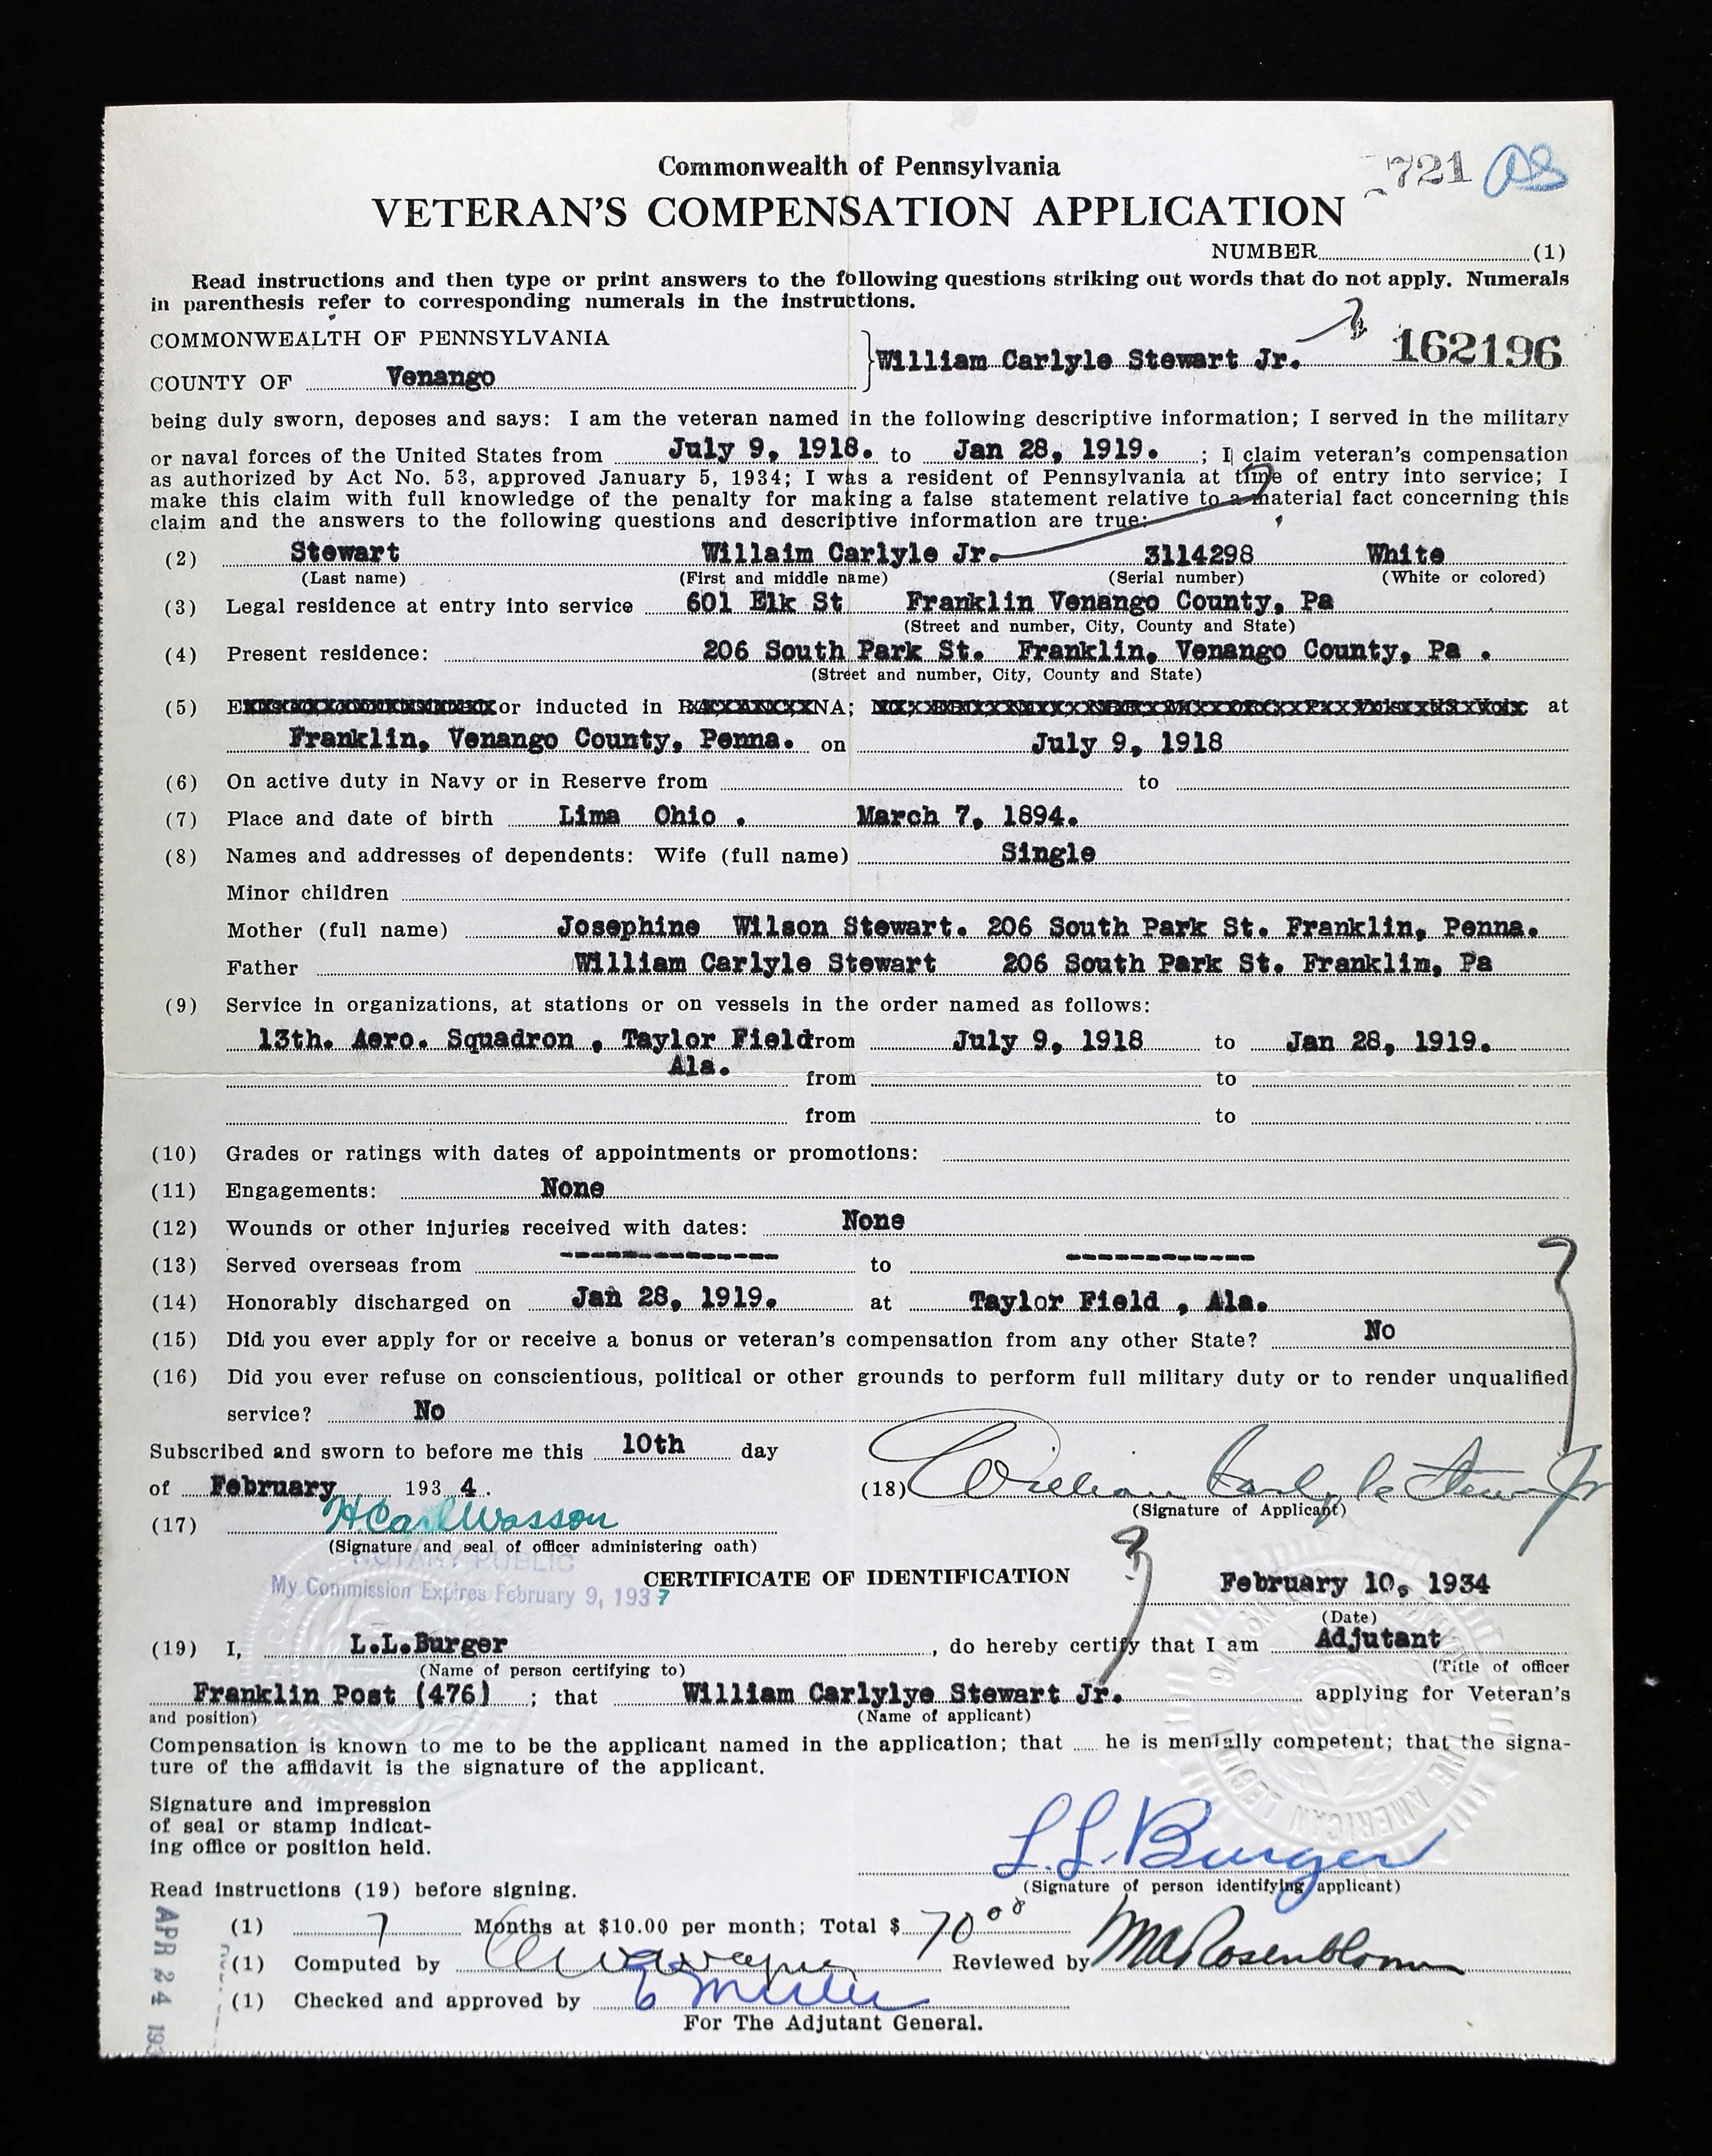 Commonwealth of Pennsylvania
721
VETERAN'S COMPENSATION APPLICATION
NUMBER (1)
Read instructions and then type or print answers to the following questions striking out words that do not apply. Numerals
in parenthesis refer to corresponding numerals in the instructions.
COMMONWEALTH OF PENNSYLVANIA
William Carlyle Stewart Jr. 162196
COUNTY OF Venango
being duly sworn, deposes and says: I am the veteran named in the following descriptive information; I served in the military
or naval forces of the United States from July 9, 1918. to Jan 28, 1919. ; I claim veteran's compensation
as authorized by Act No. 53, approved January 5, 1934; I was a resident of Pennsylvania at time of entry into service; I
make this claim with full knowledge of the penalty for making a false statement relative to a material fact concerning this
claim and the answers to the following questions and descriptive information are true:
(2) Stewart Willaim Carlyle Jr. 3114298 White
(Last name) (First and middle name) (Serial number) (White or colored)
(3) Legal residence at entry into service 601 Elk St Franklin Venango County, Pa
(Street and number, City, County and State)
(4) Present residence: 206 South Park St. Franklin, Venango County, Pa .
(Street and number, City, County and State)
(5) or inducted in NA; at
Franklin, Venango County, Penna. on July 9, 1918
(6) On active duty in Navy or in Reserve from to
(7) Place and date of birth Lima Ohio . March 7, 1894.
(8) Names and addresses of dependents: Wife (full name) Single
Minor children
Mother (full name) Josephine Wilson Stewart. 206 South Park St. Franklin, Penna.
Father William Carlyle Stewart 206 South Park St. Franklim, Pa
(9) Service in organizations, at stations or on vessels in the order named as follows:
13th. Aero. Squadron , Taylor Field from July 9, 1918 to Jan 28, 1919.
Ala. from to
from to
(10) Grades or ratings with dates of appointments or promotions:
(11) Engagements: None
(12) Wounds or other injuries received with dates: None
(13) Served overseas from -------------- to ------------
(14) Honorably discharged on Jan 28, 1919. at Taylor Field , Ala.
(15) Did you ever apply for or receive a bonus or veteran's compensation from any other State? No
(16) Did you ever refuse on conscientious, political or other grounds to perform full military duty or to render unqualified
service? No
Subscribed and sworn to before me this 10th day
of February 1934.
(18) William Carlyle Stewart Jr
(Signature of Applicant)
(17) H. Carl Wasson
(Signature and seal of officer administering oath)
NOTARY PUBLIC
My Commission Expires February 9, 1937
CERTIFICATE OF IDENTIFICATION
February 10, 1934
(Date)
(19) I, L.L.Burger , do hereby certify that I am Adjutant
(Name of person certifying to) (Title of officer
Franklin Post (476) ; that William Carlylye Stewart Jr. applying for Veteran's
and position) (Name of applicant)
Compensation is known to me to be the applicant named in the application; that he is mentally competent; that the signa-
ture of the affidavit is the signature of the applicant.
Signature and impression
of seal or stamp indicat-
ing office or position held.
THE AMERICAN LEGION
L. L. Burger
(Signature of person identifying applicant)
Read instructions (19) before signing.
(1) 7 Months at $10.00 per month; Total $ 70 00
(1) Computed by Reviewed by Rosenbloom
(1) Checked and approved by E Miller
For The Adjutant General.
APR 24 193